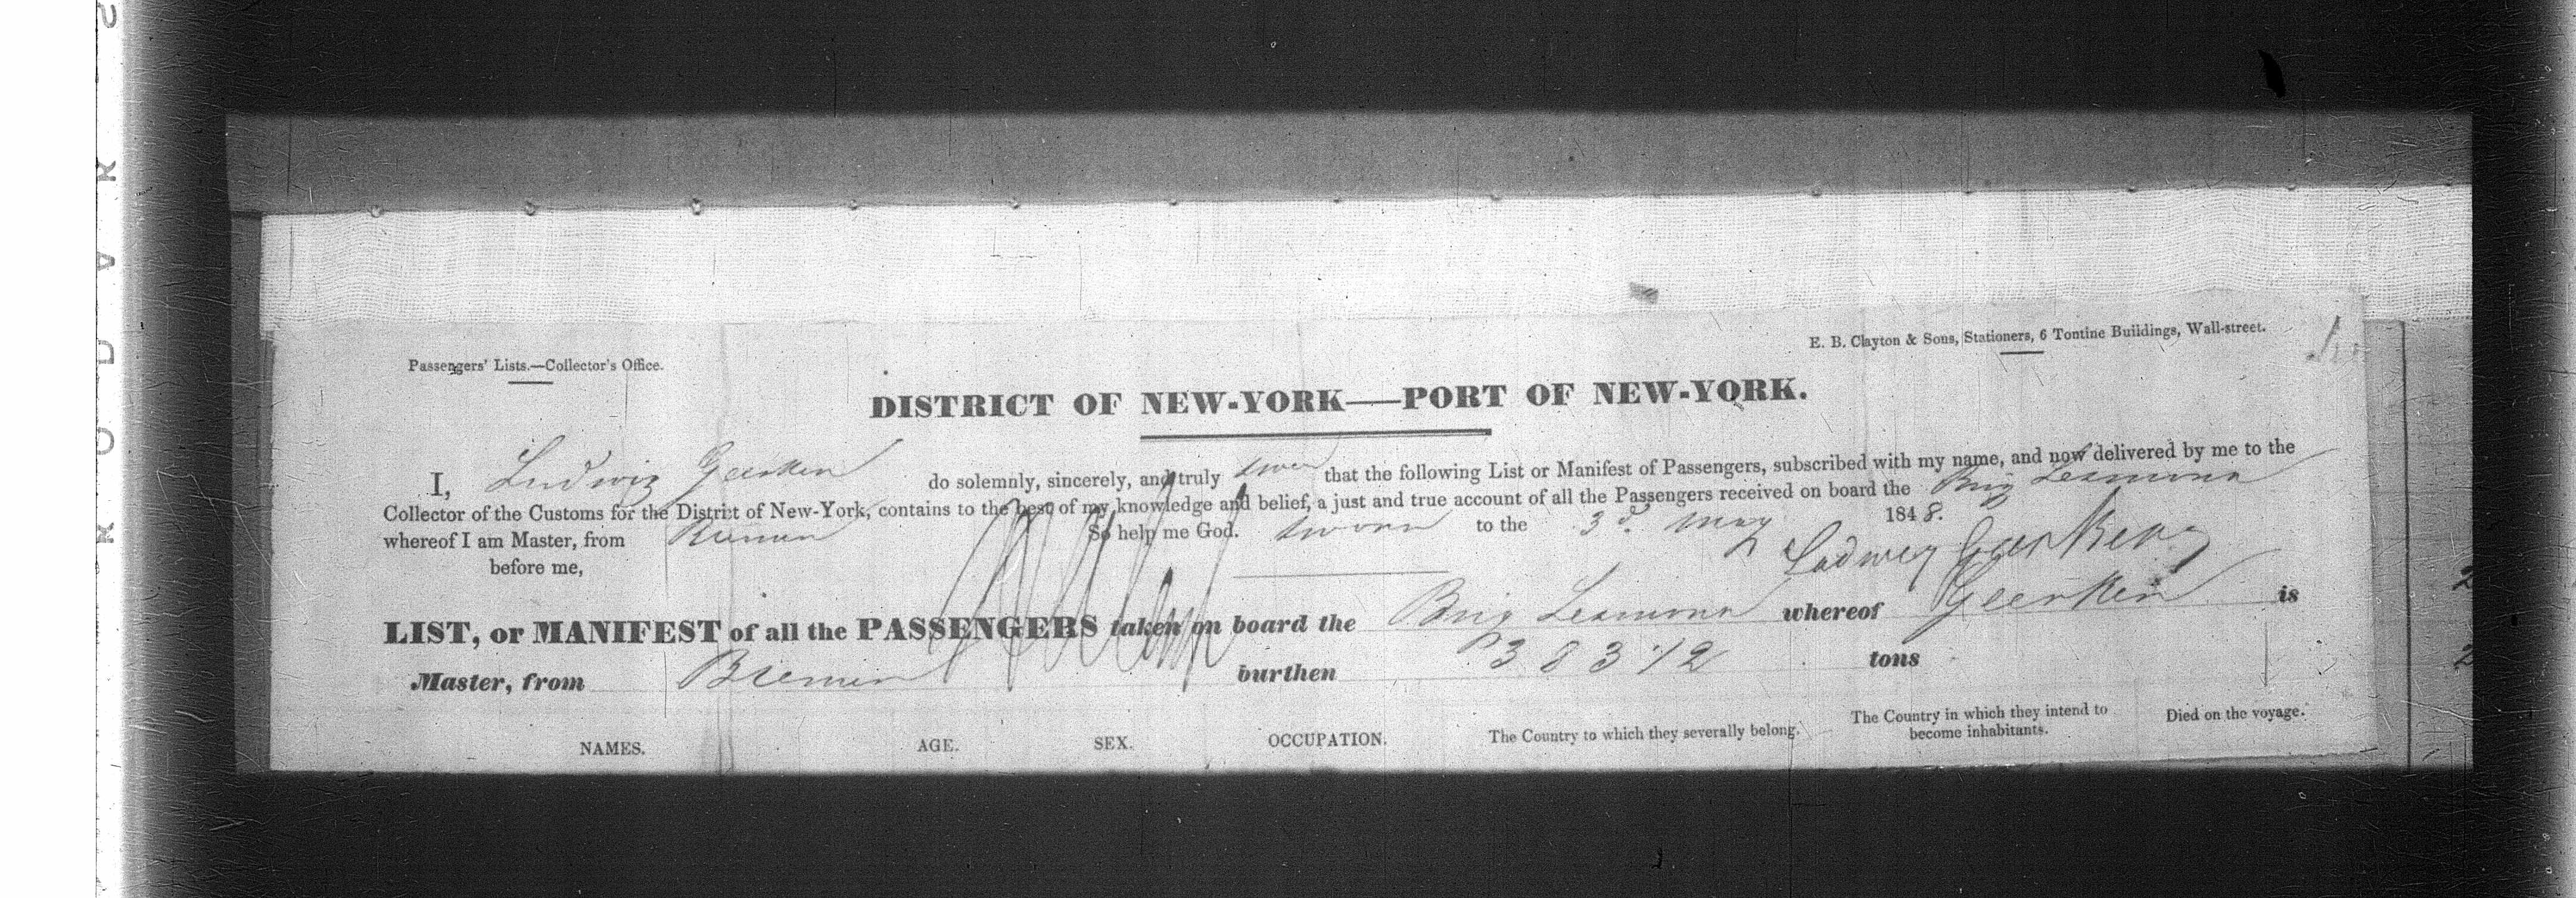 E. B. Clayton & Sons, Stationers, 6 Tontine Buildings, Wall-street.
Passengers' Lists.—Collector's Office.
DISTRICT OF NEW-YORK——PORT OF NEW-YORK.
I, Ludwig Geerken do solemnly, sincerely, and truly swear that the following List or Manifest of Passengers, subscribed with my name, and now delivered by me to the
Collector of the Customs for the District of New-York, contains to the best of my knowledge and belief, a just and true account of all the Passengers received on board the Brig Lesmona
whereof I am Master, from Bremen So help me God. Sworn to the 3d. May 1848.
before me, Ludwig Geerken
LIST, or MANIFEST of all the PASSENGERS taken on board the Brig Lesmona whereof Geerken is
Master, from Bremen burthen 383 1/2 tons
NAMES. AGE. SEX. OCCUPATION. The Country to which they severally belong. The Country in which they intend to become inhabitants. Died on the voyage.